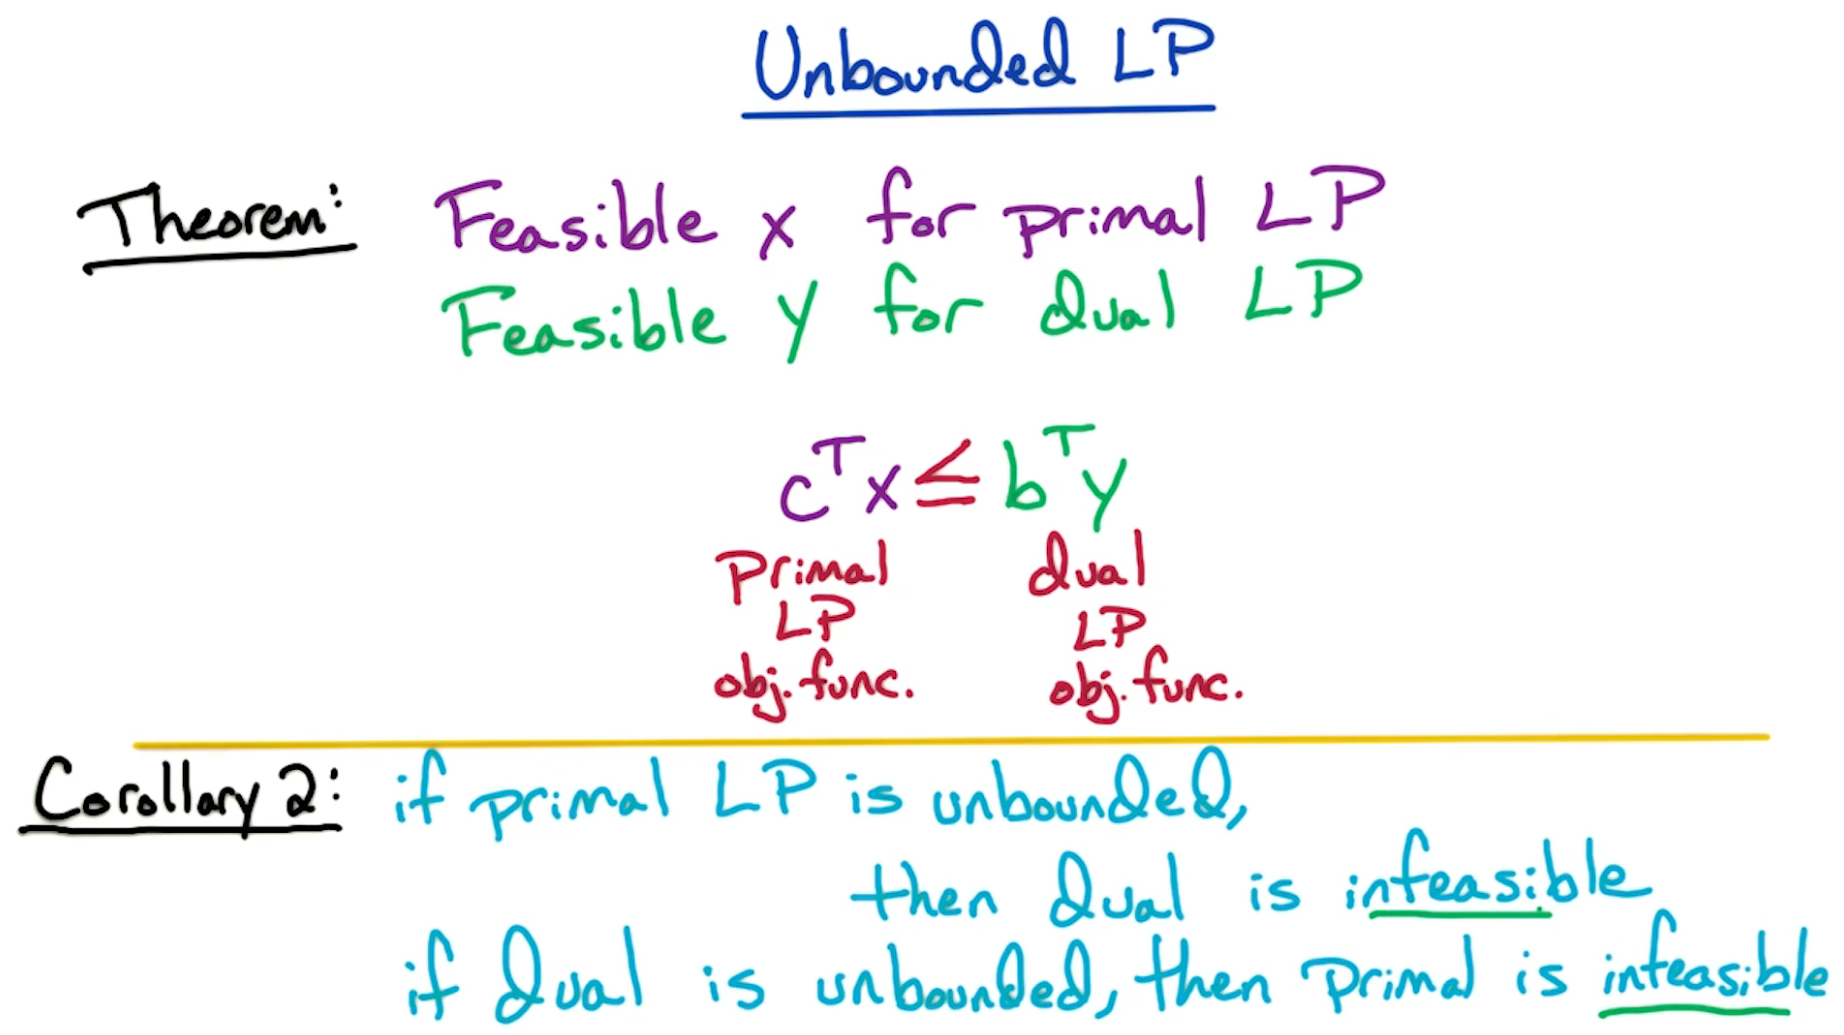 Unbounded LP
Theorem: Feasible x for primal LP
Feasible y for dual LP
cᵀx ≤ bᵀy
Primal dual
LP LP
obj. func. obj. func.
Corollary 2: if primal LP is unbounded,
then dual is infeasible
if dual is unbounded, then primal is infeasible